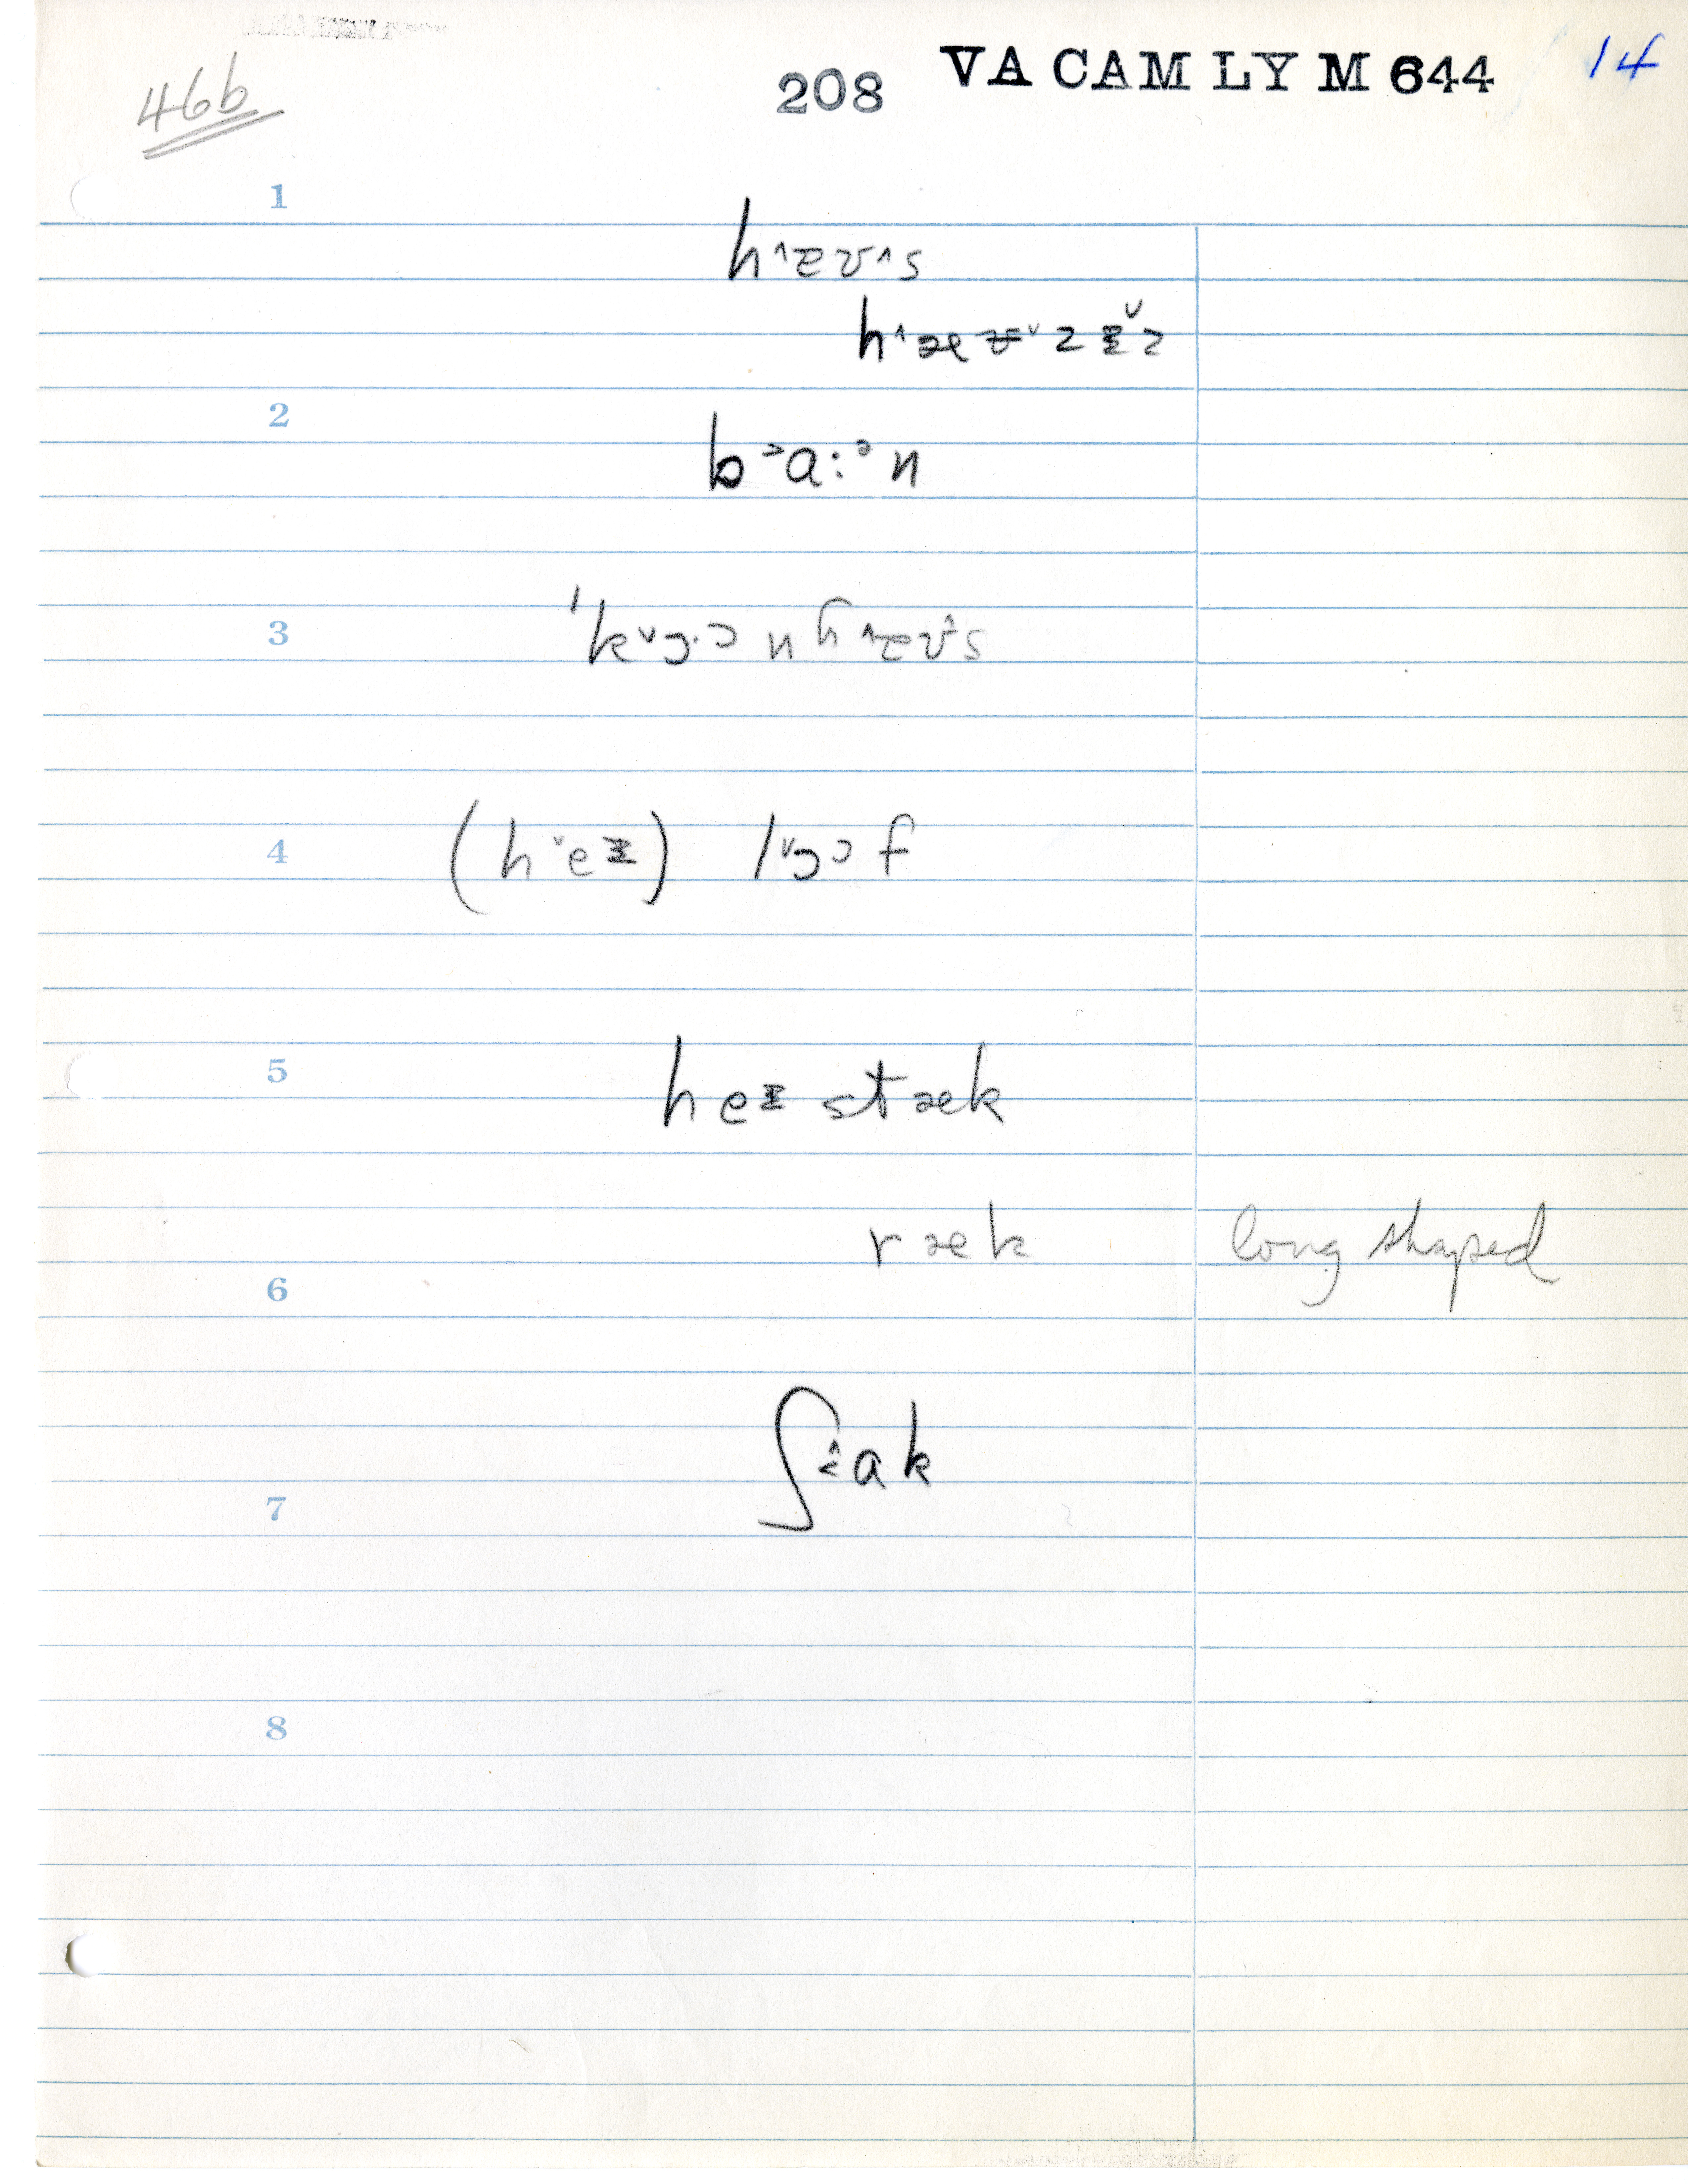 46b 208 VA CAM LY M 644 14
1
h˄æʊ˄s
h˄æʊ˅zɪ̵˅z
2
b˃a:ᵊn
3
ˈk˅ɔ·ɔnh˄æʊ˄s
4 (h˅eɪ̵) l˅ɔɔf
5 heɪ̵stæk
ræk long shaped
6
ʃ˄˂ak
7
8